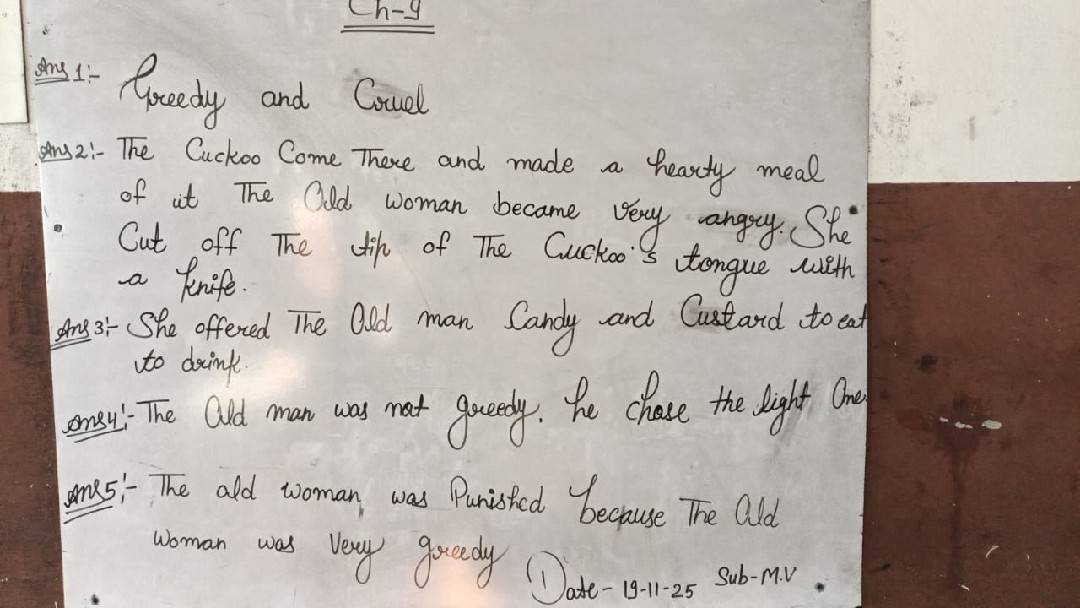 Ch-9
Ans 1:- Greedy and Cruel
Ans 2:- The Cuckoo Come There and made a hearty meal
of it The Old woman became very angry. She
Cut off The tip of The Cuckoo's tongue with
a knife.
Ans 3:- She offered The Old man Candy and Custard to eat
to drink.
Ans 4:- The Old man was not greedy. he chose the light One
Ans 5:- The old woman was Punished because The Old
Woman was Very greedy
Date - 19-11-25 Sub-M.V